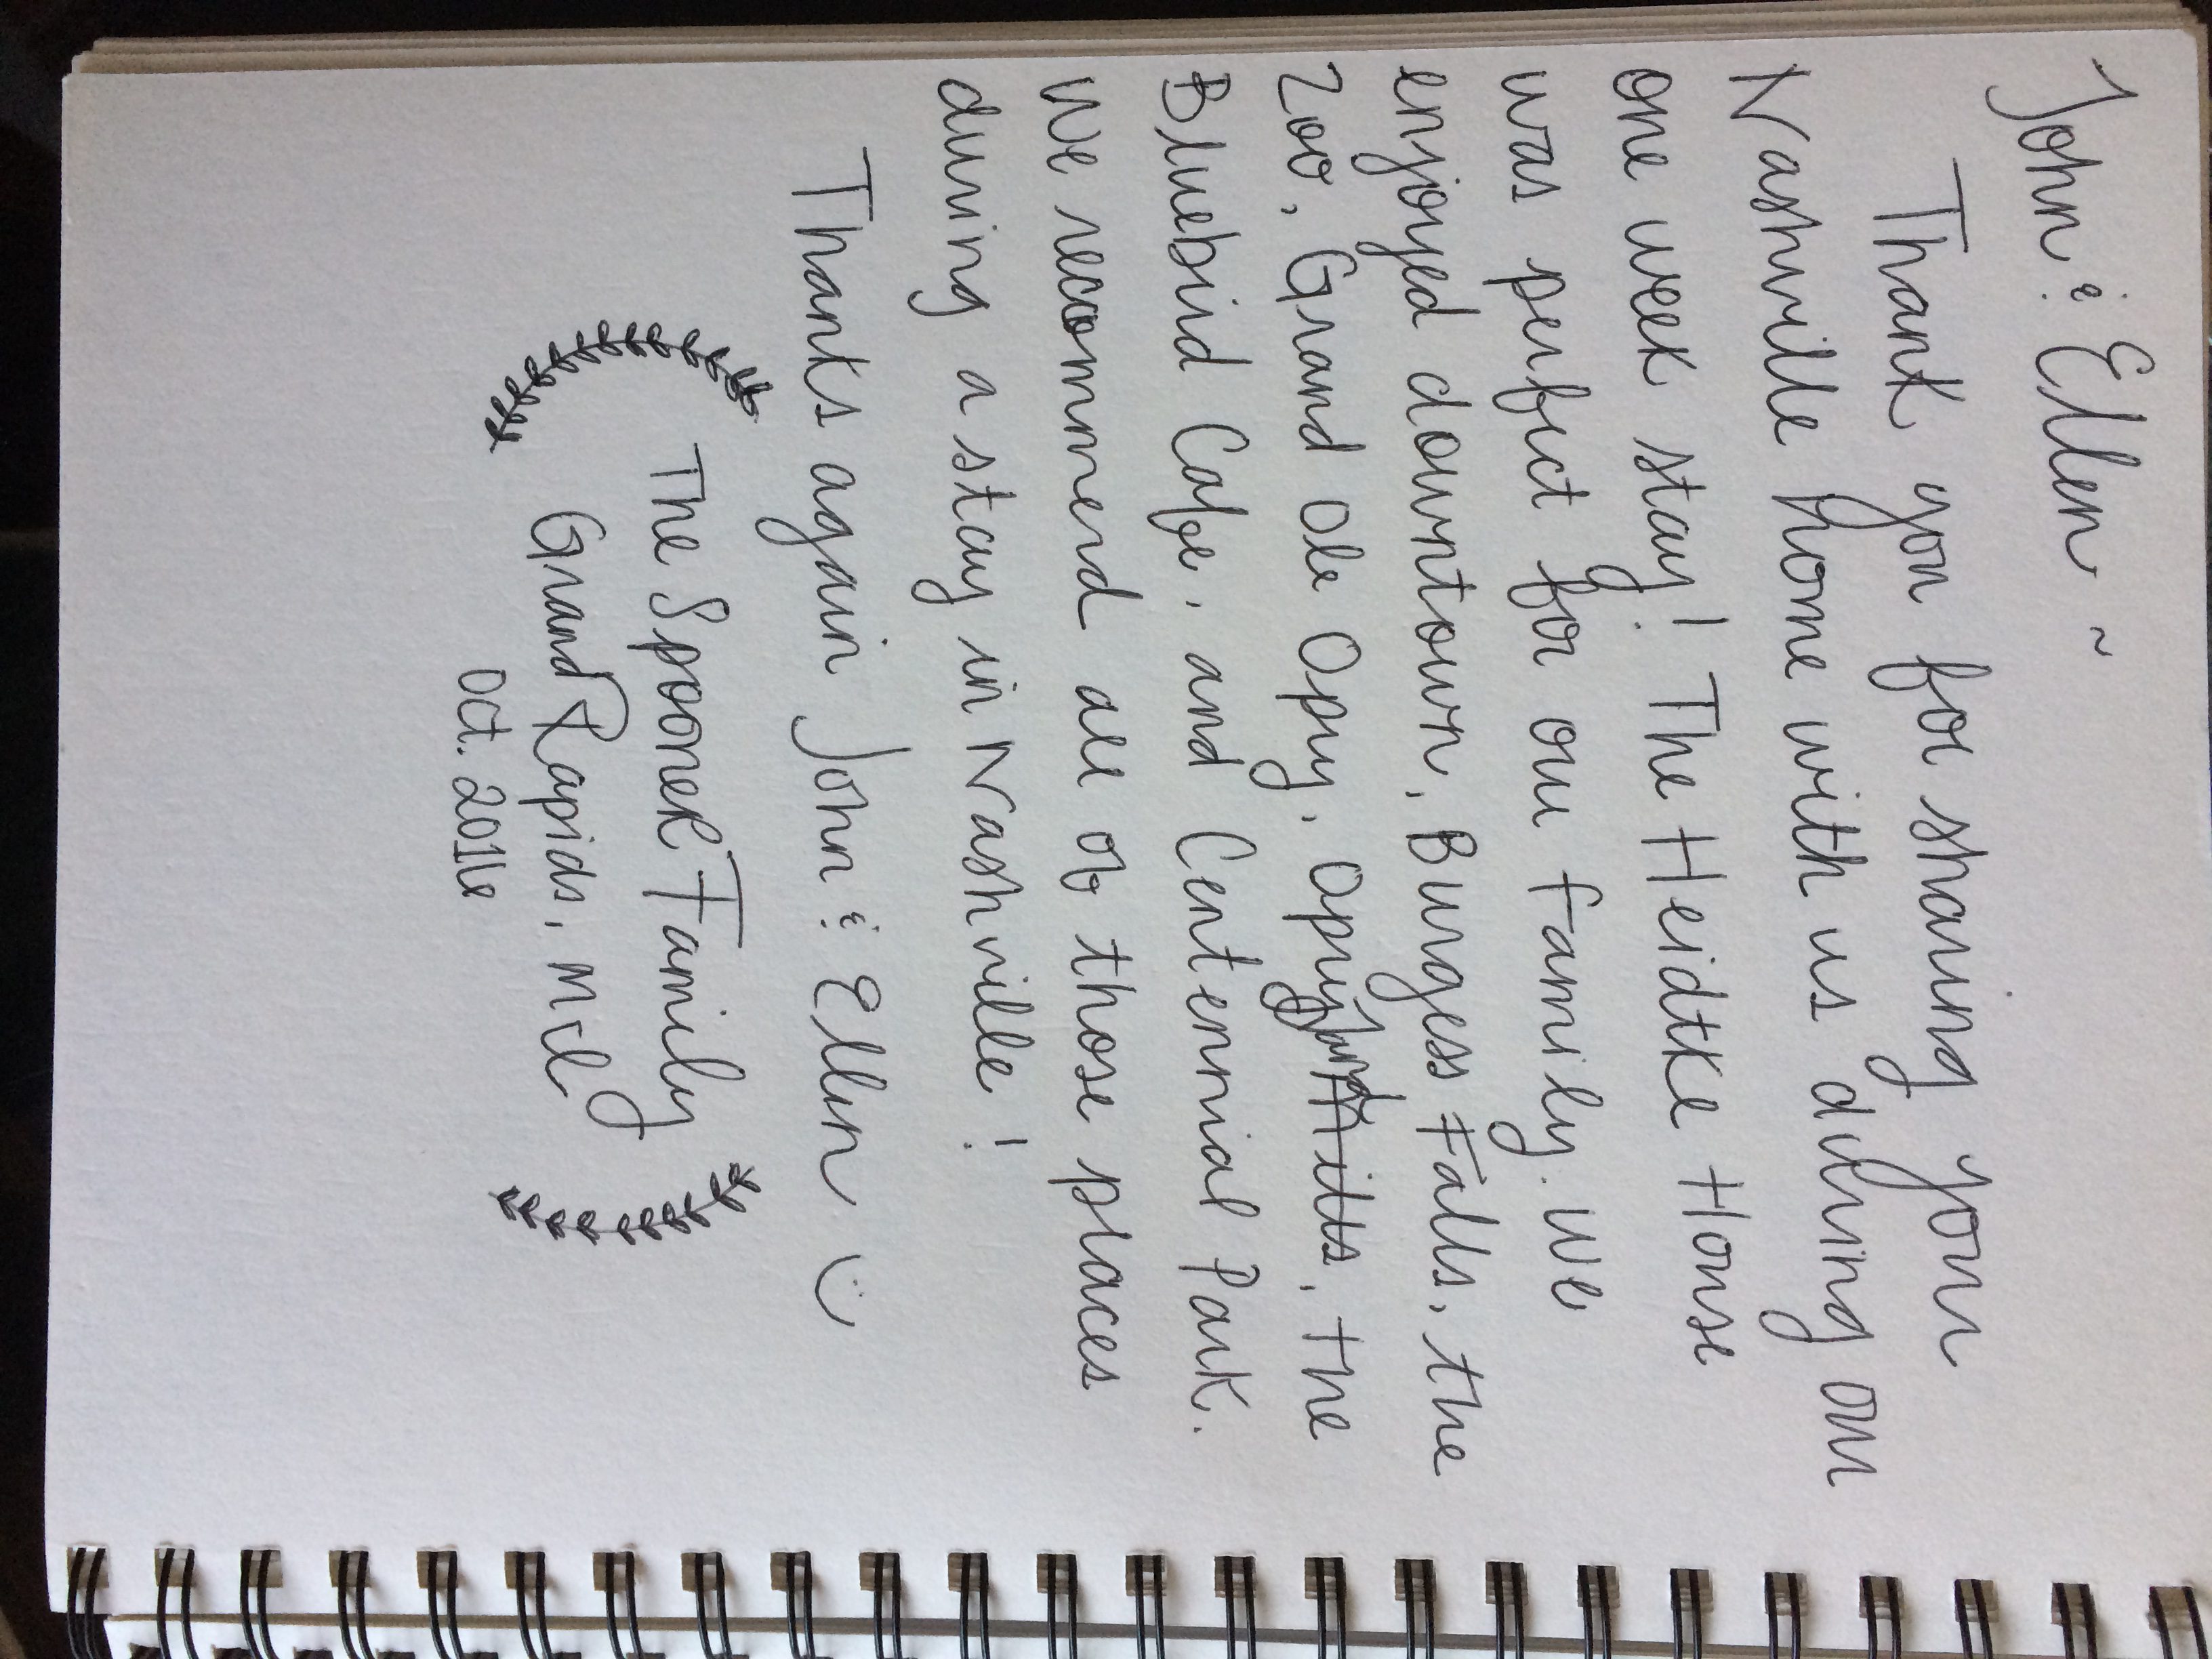 John & Ellen ~
Thank you for sharing your
Nashville home with us during our
one week stay! The Heidtke House
was perfect for our family. We
enjoyed downtown, Burgess Falls, the
Zoo, Grand Ole Opry, Opryland Hills, the
Bluebird Cafe, and Centennial Park.
We recommend all of those places
during a stay in Nashville!
Thanks again John & Ellen :)
The Spooner Family
Grand Rapids, MI
Oct. 2016